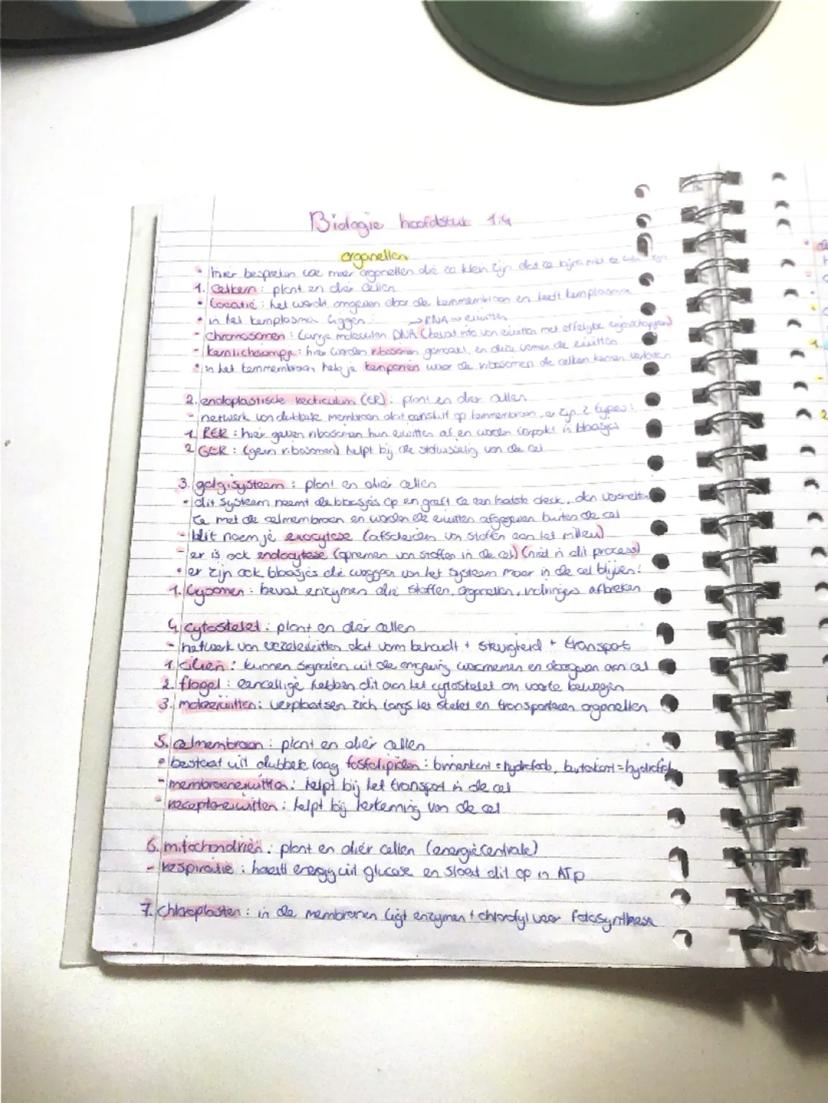 Biologie hoofdstuk 1.4
organellen
• hier bespreken we meer organellen die zo klein zijn dat ze bijna niet te zijn
1. Celkern: plant en dier cellen
• Locatie: het wordt omgeven door de kernmembraan en heeft kernplasma
• in het kernplasma liggen: → RNA → eiwitten
- chromosomen: lange moleculen DNA (bevat info van eiwitten met erfelijke eigenschappen)
- kernlichaampje: hier worden ribosomen gemaakt, en deze vormen de eiwitten
• in het kernmembraan heb je kernporiën waar de ribosomen de celkern kunnen verlaten
2. endoplastische recticulum (ER): plant en dier cellen
- netwerk van dubbele membraan dat aansluit op kernmembraan, er zijn 2 types:
1. RER: hier geven ribosomen hun eiwitten af en worden verpakt in blaasjes
2. GER: (geen ribosomen) helpt bij de stofwisseling van de cel
3. golgisysteem: plant en dier cellen
• dit systeem neemt de blaasjes op en geeft ze een laatste check, dan versmelten
ze met de celmembraan en worden de eiwitten afgegeven buiten de cel
- dit noem je exocytose (afscheiden van stoffen aan het milieu)
- er is ook endocytose (opnemen van stoffen in de cel) (niet in dit process)
• er zijn ook blaasjes die weggaan van het systeem maar in de cel blijven:
1. lysomen: bevat enzymen die stoffen, organellen, indringers afbreken
4. cytoskelet: plant en dier cellen
- netwerk van vezeleiwitten dat vorm behoudt + stevigheid + transport
1. ciliën: kunnen signalen uit de omgeving waarnemen en doorgeven aan cel
2. flagel: eencellige hebben dit aan het cytoskelet om voort te bewegen
3. motoreiwitten: verplaatsen zich langs het skelet en transporteren organellen
5. celmembraan: plant en dier cellen
• bestaat uit dubbele laag fosfolipiden: binnenkant = hydrofoob, buitenkant = hydrofiel
- membraneiwitten: helpt bij het transport in de cel
- receptoreiwitten: helpt bij herkenning van de cel
6. mitochondriën: plant en dier cellen (energiecentrale)
- respiratie: haalt energy uit glucose en slaat dit op in ATP
7. chloroplasten: in de membranen ligt enzymen + chlorofyl voor fotosynthese